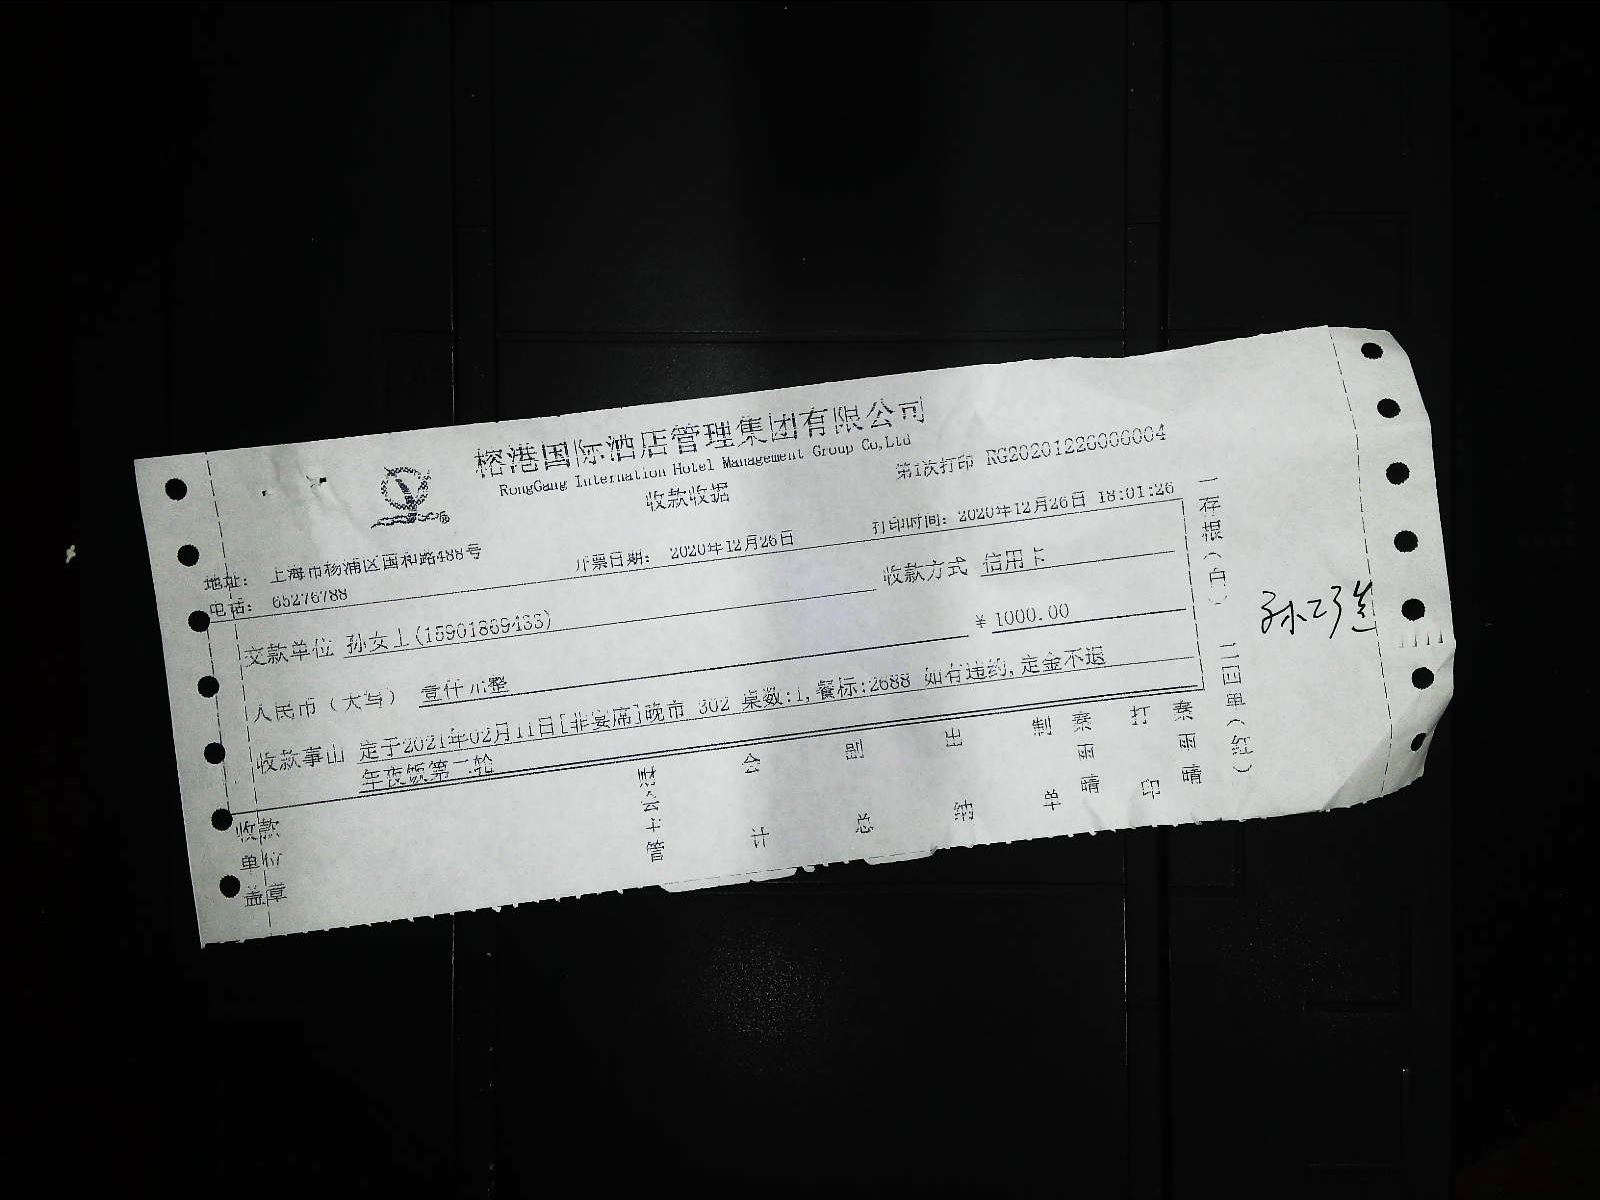 榕港国际酒店管理集团有限公司
RongGang Internation Hotel Management Group Co,Ltd
收款收据
第1次打印 RG20201226000004
地址： 上海市杨浦区国和路488号
电话： 65276788
开票日期： 2020年12月26日
打印时间：2020年12月26日 18:01:26
交款单位 孙女士(15901869433)
收款方式 信用卡
人民币（大写） 壹仟元整
￥1000.00
收款事由 定于2021年02月11日[非宴席]晚市 302 桌数:1,餐标:2688 如有违约,定金不退
年夜饭第二轮
收款单位盖章
财会主管
会计
副总
出纳
制单
打印
一存根(白) 二回单(红)